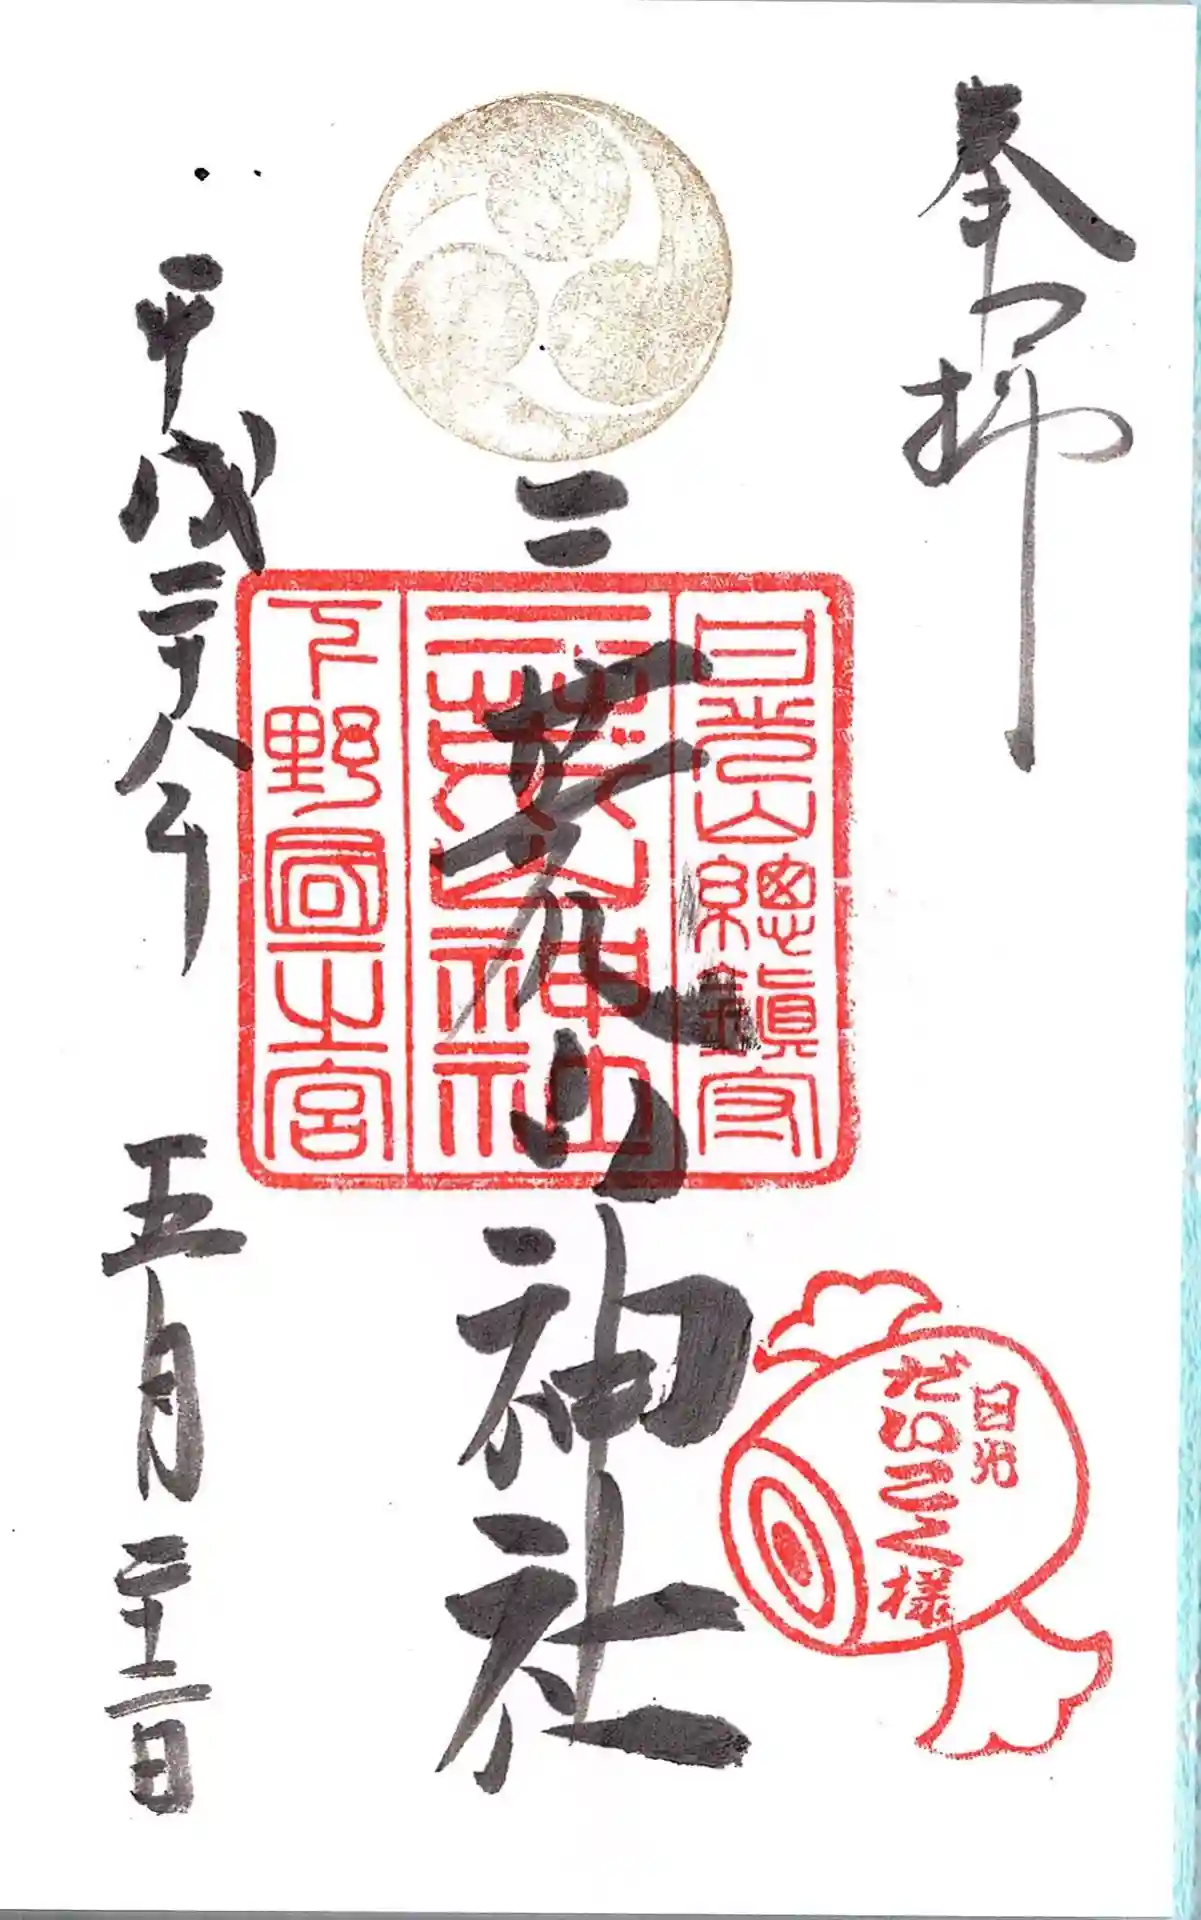 奉拝
日光山總鎮守
二荒山神社
下野國一之宮
二荒山神社
日光
だいこく様
平成二十八年 五月二十二日